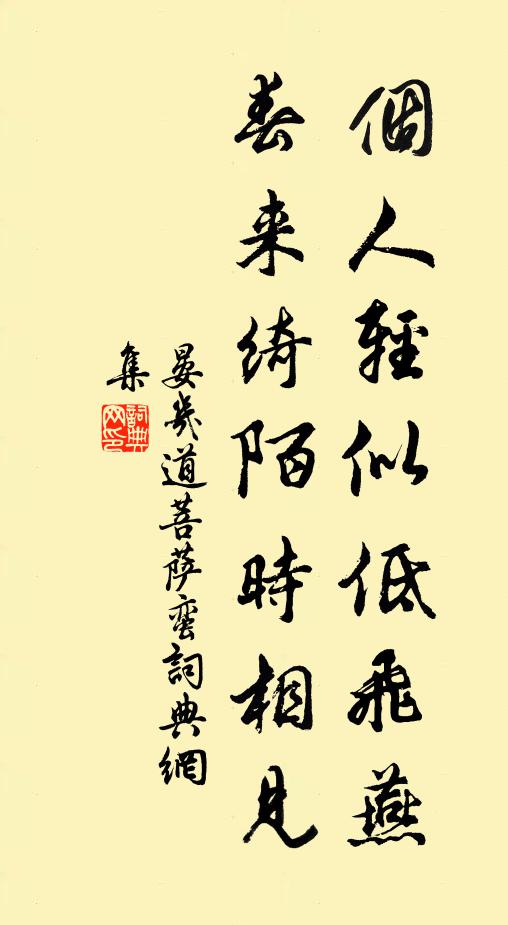 個人輕似低飛燕
春来綺陌時相見
晏幾道菩薩蛮詞典網
集
詞典网印